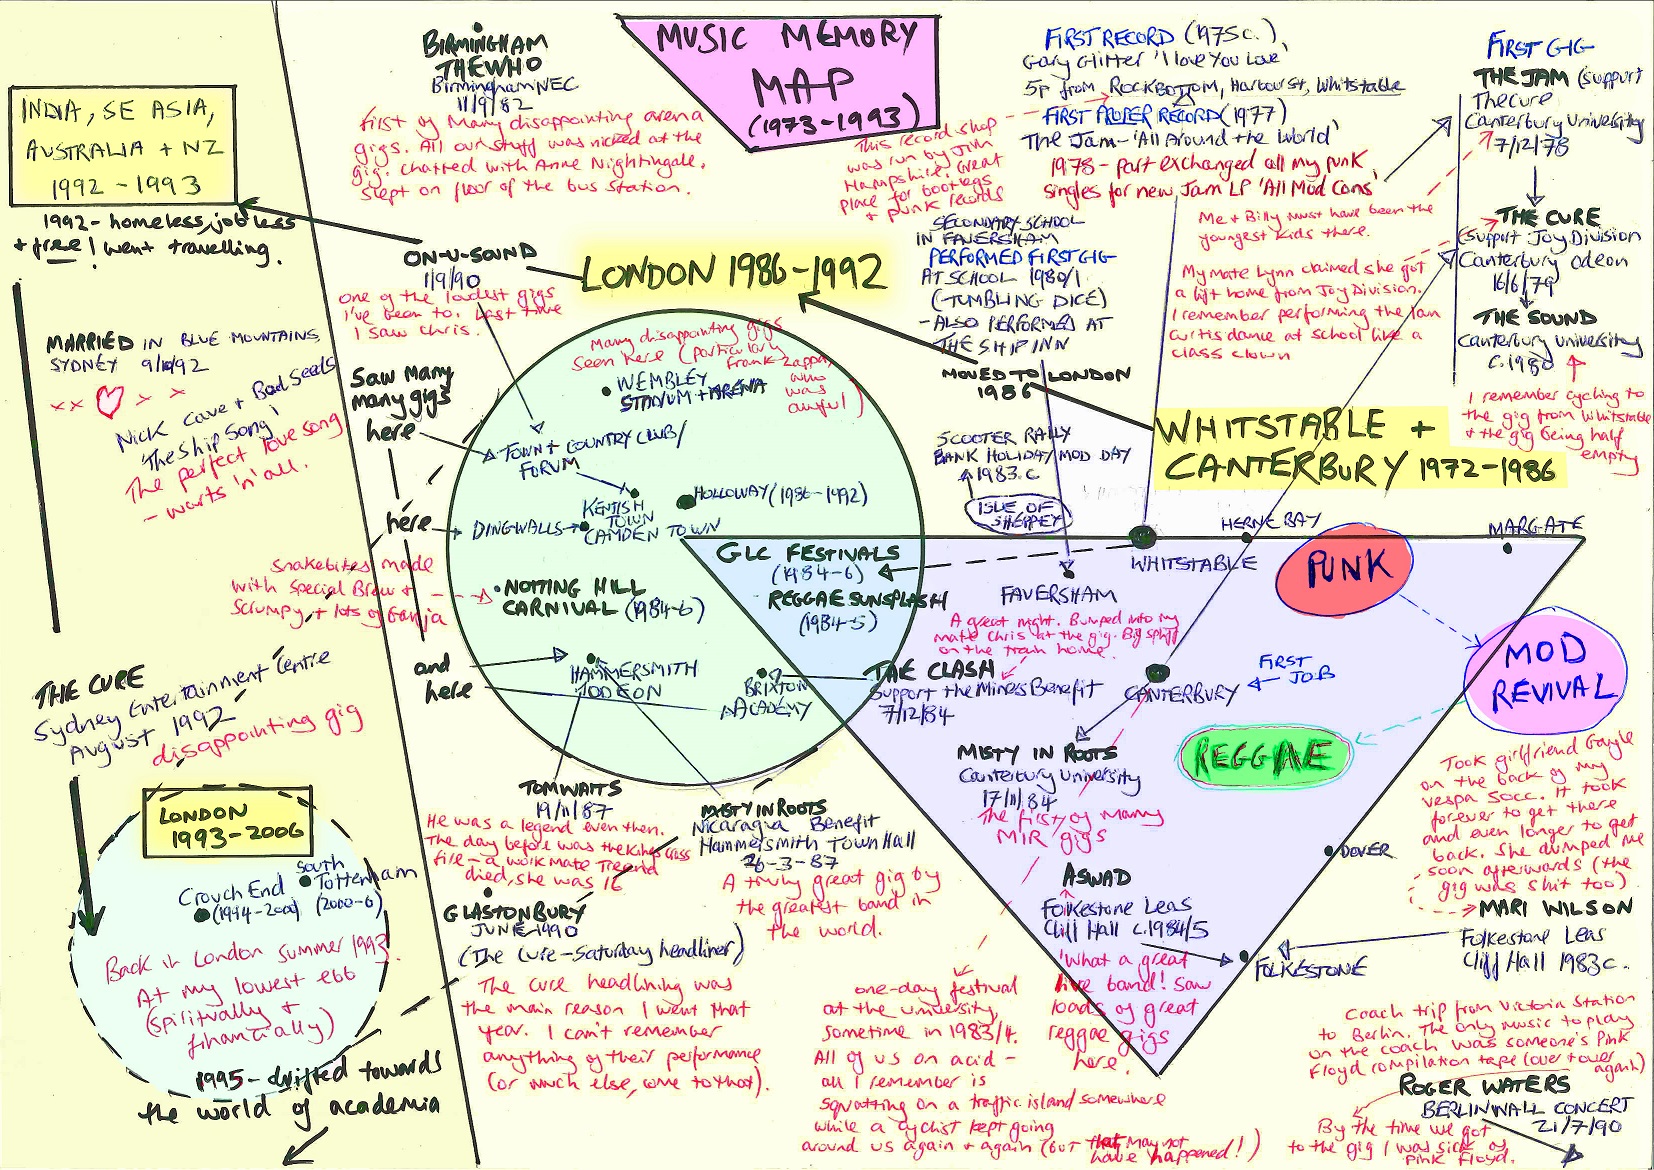 MUSIC MEMORY
MAP
(1973-1993)
BIRMINGHAM
THE WHO
Birmingham NEC
11/9/82
First of Many disappointing arena
gigs. All our stuff was nicked at the
gig. Chatted with Anne Nightingale.
Slept on floor of the bus station.
INDIA, SE ASIA,
AUSTRALIA + NZ
1992 - 1993
1992 - homeless, jobless
+ free! went travelling.
MARRIED IN BLUE MOUNTAINS,
SYDNEY
Nick Cave + Bad Seeds
'The Ship Song'
The perfect love song
- warts 'n' all.
THE CURE
Sydney Entertainment Centre
August 1992
disappointing gig
LONDON
1993-2006
South
Tottenham
(2000-6)
Crouch End
(1994-2000)
Back in London summer 1993.
At my lowest ebb
(spiritually +
financially)
1995 - drifted towards
the world of academia
ON-U-SOUND
1/9/90
One of the loudest gigs
I've been to. Last time
I saw Chris.
LONDON 1986-1992
Saw many
many gigs
here
here
and
here
Many disappointing gigs
seen here (particularly
Frank Zappa,
who
was
awful)
WEMBLEY
STADIUM + ARENA
TOWN + COUNTRY CLUB/
FORUM
KENTISH
TOWN
HOLLOWAY (1986-1992)
DINGWALLS
CAMDEN TOWN
Snakebites made
with Special Brew +
Scrumpy + lots of Ganja
NOTTING HILL
CARNIVAL (1984-6)
GLC FESTIVALS
(1984-6)
REGGAE SUNSPLASH
(1984-5)
HAMMERSMITH
ODEON
BRIXTON
ACADEMY
THE CLASH
Support the Miners Benefit
7/12/84
A great night. Bumped into my
mate Chris at the gig. Big spliff
on the train home.
TOM WAITS
19/11/87
He was a legend even then.
The day before was the Kings Cross
fire - a work mate
died, she was 18
MISTY IN ROOTS
Nicaragua Benefit
Hammersmith Town Hall
26-3-87
A truly great gig by
the greatest band in
the world.
GLASTONBURY
JUNE 1990
(The Cure - Saturday headliner)
The Cure headlining was
the main reason I went that
year. I can't remember
anything of their performance
(or much else, come to that).
FIRST RECORD (1975c.)
Gary Glitter 'I Love You Love'
5p from ROCKBOTTOM, Harbour St, Whitstable
FIRST PROPER RECORD (1977)
The Jam - 'All Around the World'
1978 - part exchanged all my punk
singles for new Jam LP 'All Mod Cons'
This record shop
was run by Jim
Hampshire. Great
place for bootlegs
+ punk records
SECONDARY SCHOOL
IN FAVERSHAM
PERFORMED FIRST GIG
AT SCHOOL 1980/1
(TUMBLING DICE)
- ALSO PERFORMED AT
THE SHIP INN
MOVED TO LONDON
1986
FIRST GIG
THE JAM (support
The Cure
Canterbury University
7/12/78
Me + Billy must have been the
youngest kids there.
THE CURE
(Support Joy Division
Canterbury Odeon
16/6/79
My mate Lynn claimed she got
a lift home from Joy Division.
I remember performing the Ian
Curtis dance at school like a
class clown
THE SOUND
Canterbury University
c.1980
I remember cycling to
the gig from Whitstable
+ the gig being half
empty
WHITSTABLE +
CANTERBURY 1972-1986
SCOOTER RALLY
BANK HOLIDAY MOD DAY
1983.c
ISLE OF
SHEPPEY
WHITSTABLE
HERNE BAY
MARGATE
FAVERSHAM
PUNK
MOD
REVIVAL
REGGAE
CANTERBURY
FIRST
JOB
MISTY IN ROOTS
Canterbury University
17/11/84
The first of many
MIR gigs
ASWAD
Folkestone Leas
Cliff Hall c.1984/5
'What a great
live band! Saw
loads of great
reggae gigs
here.
DOVER
FOLKESTONE
Took girlfriend Gayle
on the back of my
vespa 50cc. It took
forever to get there
and even longer to get
back. She dumped me
soon afterwards (the
gig was shit too)
MARI WILSON
Folkestone Leas
Cliff Hall 1983c.
one-day festival
at the university
sometime in 1983/4.
All of us on acid -
all I remember is
squatting on a traffic island somewhere
while a cyclist kept going
around us again + again (but that may not
have happened!)
Coach trip from Victoria Station
to Berlin. The only music to play
on the coach was someone's Pink
Floyd compilation tape (over + over
again)
ROGER WATERS
BERLIN WALL CONCERT
21/7/90
By the time we got
to the gig I was sick of
Pink Floyd.